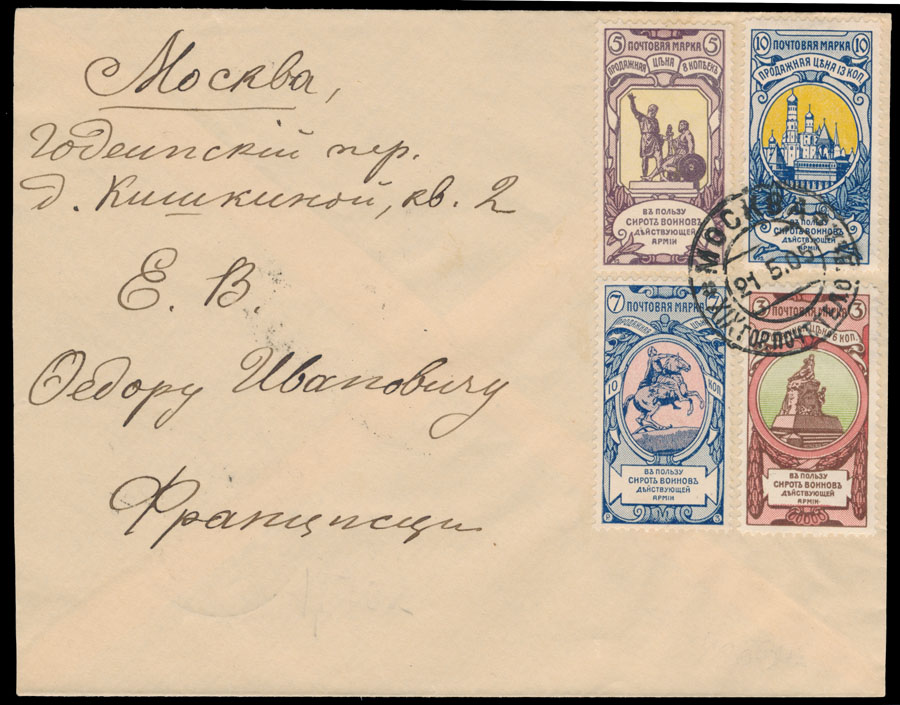 Москва,
Годеинскій пер.
д. Кишкиной, кв. 2
Е. В.
Ѳедору Ивановичу
5 ПОЧТОВАЯ МАРКА 5
ПРОДАЖНАЯ ЦѢНА 8 КОПѢЕКЪ
ВЪ ПОЛЬЗУ
СИРОТЪ ВОИНОВЪ
ДѢЙСТВУЮЩЕЙ
АРМІИ
10 ПОЧТОВАЯ МАРКА 10
ПРОДАЖНАЯ ЦѢНА 13 КОП.
ПОЛЬЗУ
СИРОТЪ ВОИНОВЪ
ДѢЙСТВУЮЩЕЙ
АРМІИ
МОСКВА
21 5.05
7 ПОЧТОВАЯ МАРКА
ПРОДАЖНАЯ
10 КОП
ВЪ ПОЛЬЗУ
СИРОТЪ ВОИНОВЪ
ДѢЙСТВУЮЩЕЙ
АРМІИ
3 ПОЧТОВАЯ МАРКА 3
ЦѢНА 6 КОП.
ВЪ ПОЛЬЗУ
СИРОТЪ ВОИНОВЪ
ДѢЙСТВУЮЩЕЙ
АРМІИ